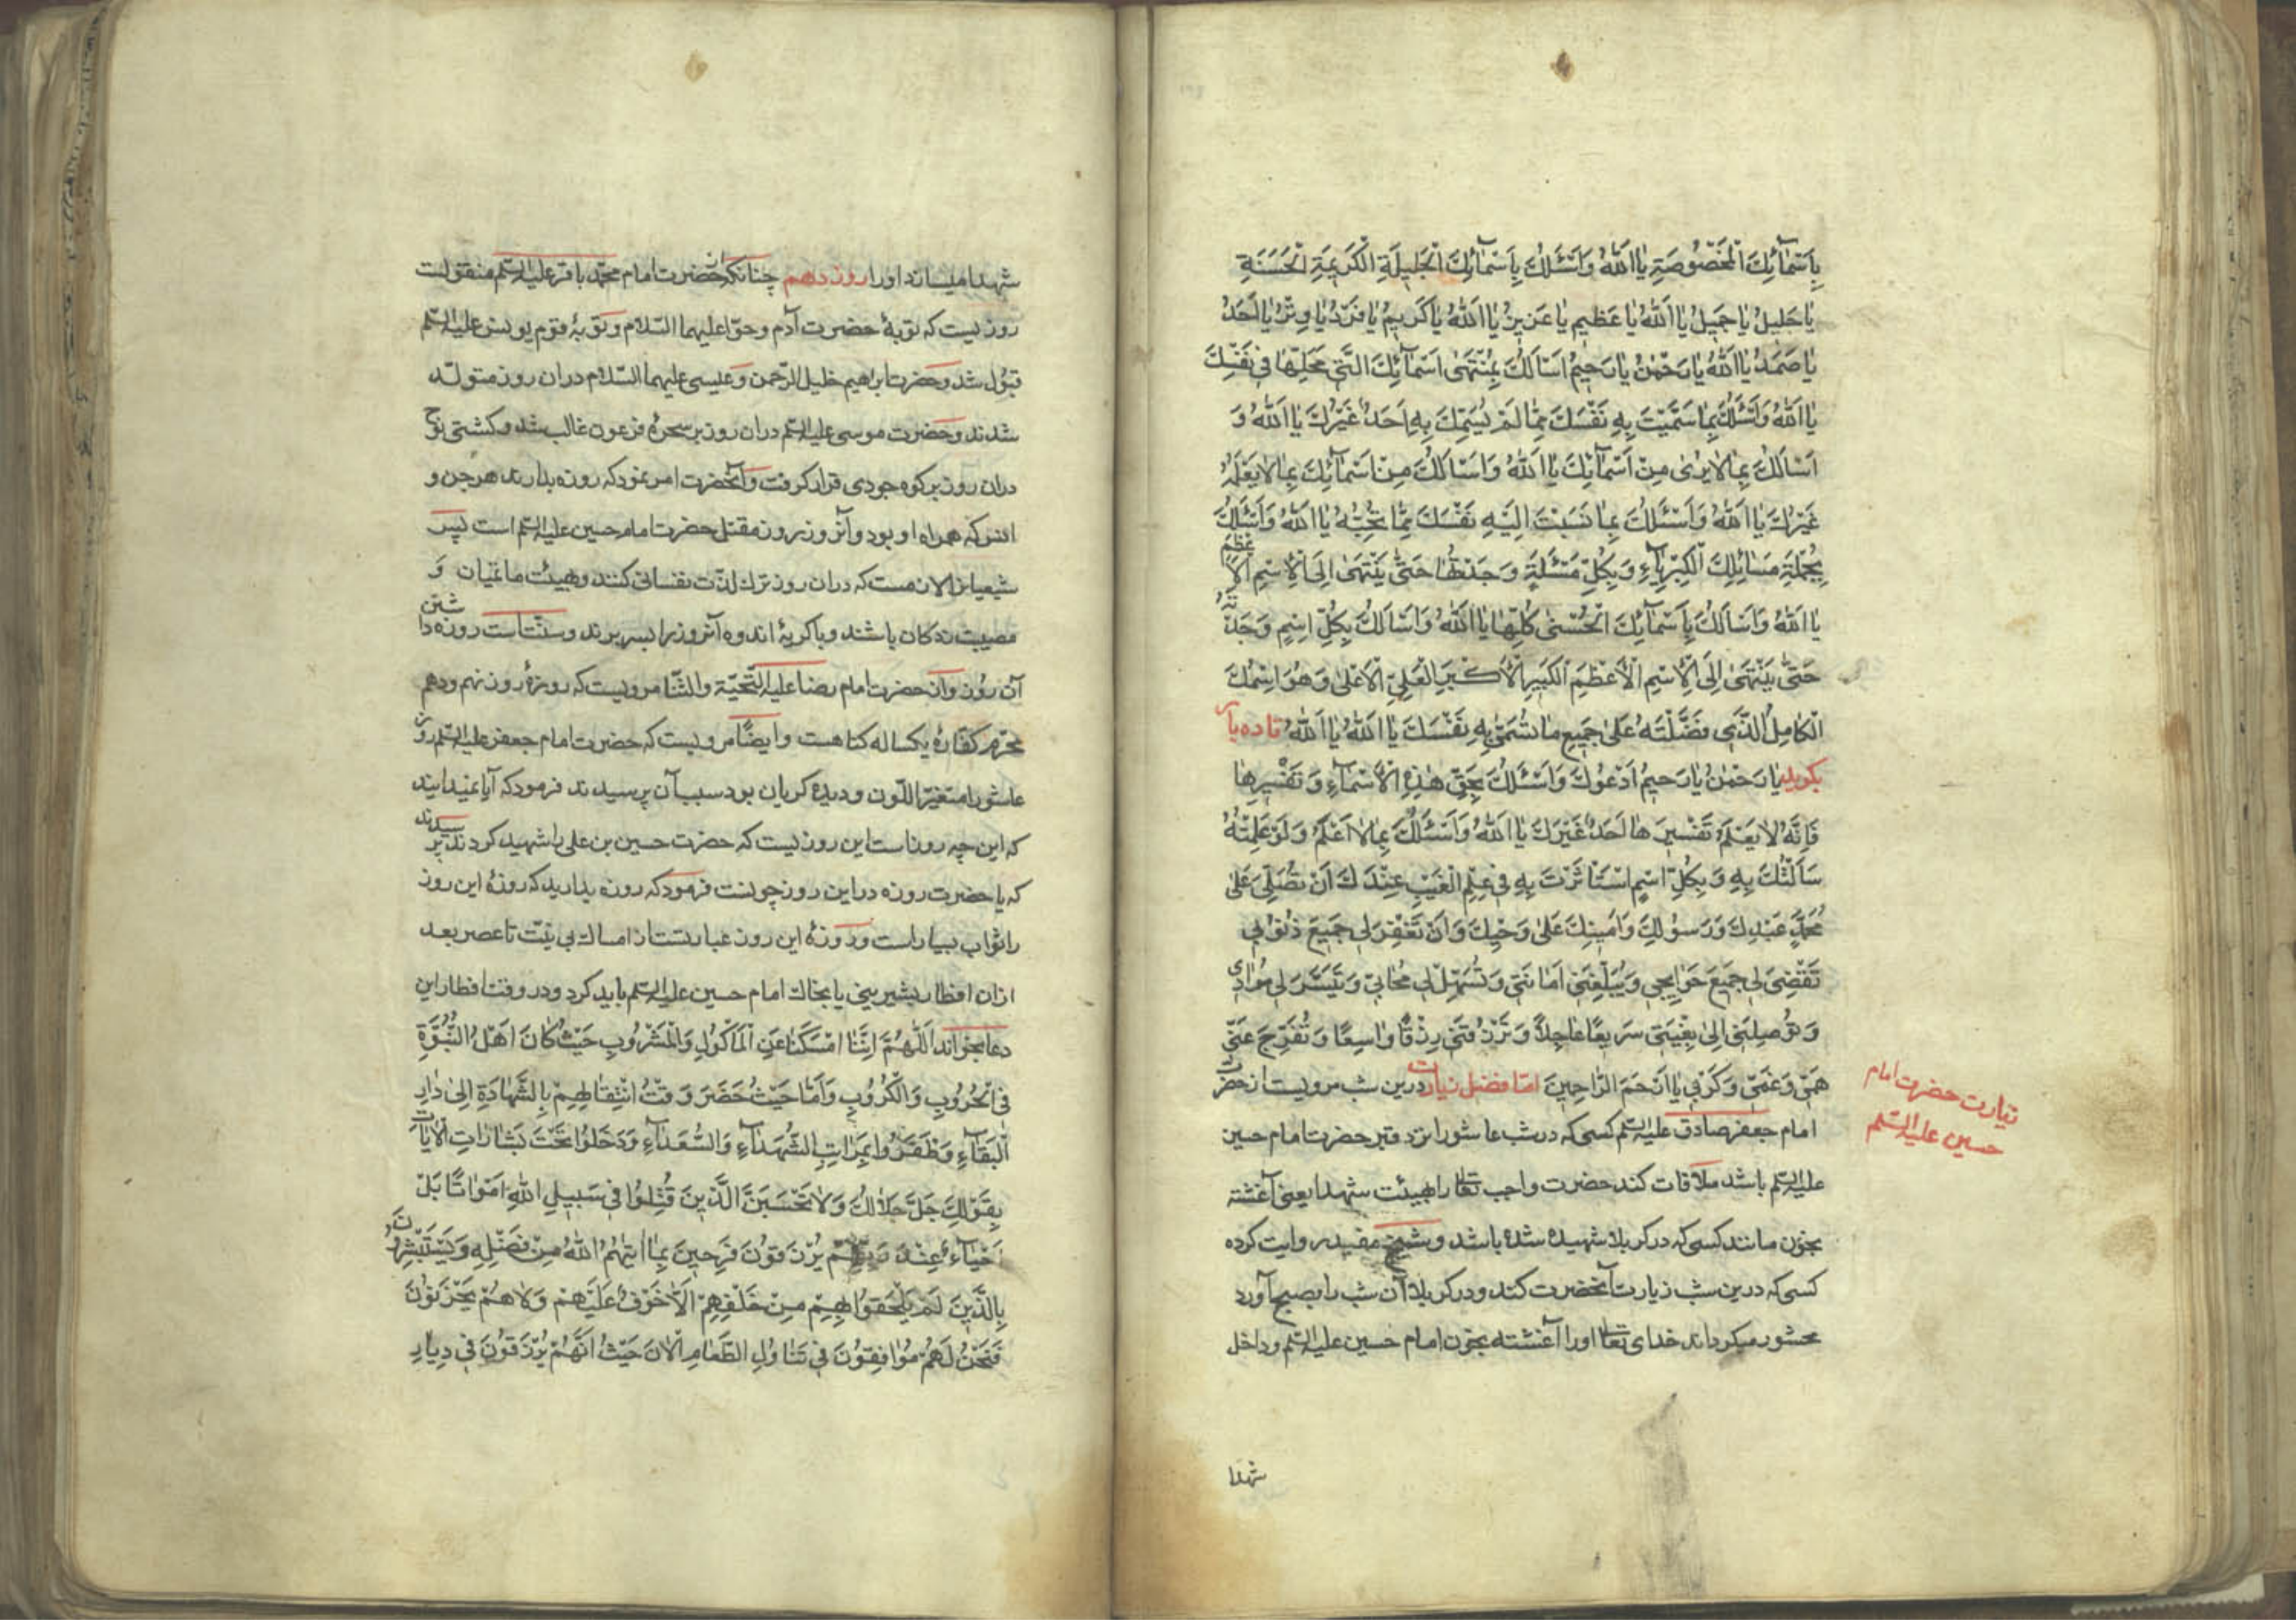 بِاَسْمٰآئِكَ الْمَخْصُوصَةِ يٰا اَللّٰهُ وَاَسْئَلُكَ بِاَسْمٰآئِكَ الْجَلِيلَةِ الْكَرِيمَةِ الْحَسَنَةِ
يٰا جَلِيلُ يٰا جَمِيلُ يٰا اَللّٰهُ يٰا عَظِيمُ يٰا عَزِيزُ يٰا اَللّٰهُ يٰا كَرِيمُ يٰا فَرْدُ يٰا وِتْرُ يٰا اَحَدُ
يٰا صَمَدُ يٰا اَللّٰهُ يٰا رَحْمٰنُ يٰا رَحِيمُ اَسْاَلُكَ بِمُنْتَهىٰ اَسْمٰآئِكَ الَّتِي مَحَلُّهٰا فِي نَفْسِكَ
يٰا اَللّٰهُ وَاَسْئَلُكَ بِمٰا سَمَّيْتَ بِهِ نَفْسَكَ مِمّٰا لَمْ يُسَمِّكَ بِهِ اَحَدٌ غَيْرُكَ يٰا اَللّٰهُ وَ
اَسْاَلُكَ بِمٰا لٰا يُرىٰ مِنْ اَسْمٰآئِكَ يٰا اَللّٰهُ وَاَسْاَلُكَ مِنْ اَسْمٰآئِكَ بِمٰا لٰا يَعْلَمُهُ
غَيْرُكَ يٰا اَللّٰهُ وَاَسْئَلُكَ بِمٰا نَسَبْتَ اِلَيْهِ نَفْسَكَ مِمّٰا تُحِبُّهُ يٰا اَللّٰهُ وَاَسْئَلُكَ
بِجُمْلَةِ مَسٰائِلِكَ الْكِبْرِيٰآءِ وَبِكُلِّ مَسْئَلَةٍ وَجَدْتُهٰا حَتّٰى يَنْتَهىٰ اِلَى الْاِسْمِ الْاَعْظَمِ
يٰا اَللّٰهُ وَاَسْاَلُكَ بِاَسْمٰآئِكَ الْحُسْنىٰ كُلِّهٰا يٰا اَللّٰهُ وَاَسْاَلُكَ بِكُلِّ اسْمٍ وَجَدْتُهُ
حَتّٰى يَنْتَهىٰ اِلَى الْاِسْمِ الْاَعْظَمِ الْكَبِيرِ الْاَكْبَرِ الْعَلِيِّ الْاَعْلىٰ وَهُوَ اسْمُكَ
الْكٰامِلُ الَّذِي فَضَّلْتَهُ عَلىٰ جَمِيعِ مٰا تُسَمّٰى بِهِ نَفْسَكَ يٰا اَللّٰهُ يٰا اَللّٰهُ تا ده بار
بگوید یٰا رَحْمٰنُ يٰا رَحِيمُ اَدْعُوكَ وَاَسْئَلُكَ بِحَقِّ هٰذِهِ الْاَسْمٰآءِ وَتَفْسِيرِهٰا
فَاِنَّهُ لٰا يَعْلَمُ تَفْسِيرَهٰا اَحَدٌ غَيْرُكَ يٰا اَللّٰهُ وَاَسْئَلُكَ بِمٰا لٰا اَعْلَمُ وَلَوْ عَلِمْتُهُ
سَاَلْتُكَ بِهِ وَبِكُلِّ اسْمٍ اسْتَاْثَرْتَ بِهِ فِي عِلْمِ الْغَيْبِ عِنْدَكَ اَنْ تُصَلِّيَ عَلىٰ
مُحَمَّدٍ عَبْدِكَ وَرَسُولِكَ وَاَمِينِكَ عَلىٰ وَحْيِكَ وَاَنْ تَغْفِرَ لِي جَمِيعَ ذُنُوبِي
تَقْضِيَ لِي جَمِيعَ حَوٰايِجِي وَتُبَلِّغَنِي اَمٰانِيَّ وَتُسَهِّلَ لِي مَحٰابِّي وَتُيَسِّرَ لِي مُرٰادِي
وَتُوصِلَنِي اِلىٰ بُغْيَتِي سَرِيعًا عٰاجِلًا وَتَرْزُقَنِي رِزْقًا وٰاسِعًا وَتُفَرِّجَ عَنِّي
هَمِّي وَغَمِّي وَكَرْبِي يٰا اَرْحَمَ الرّٰاحِمِينَ امّا فضل زیارت درین شب مرویست از حضرت
امام جعفر صادق علیه السلم کسی که در شب عاشورا نزد قبر حضرت امام حسین
علیه السلم باشد ملاقات کند حضرت واجب تعالی را بهیئت شهدا یعنی آغشته
بخون مانند کسی که در کربلا شهید شده باشد و شیخ مفید روایت کرده
کسی که درین شب زیارت آنحضرت کند و در کربلا آن شب را بصبح آورد
محشور میکرداند خدای تعالی اورا آغشته بخون امام حسین علیه السلم و داخل
زیارت حضرت امام
حسین علیه السلم
شهدا
شهدا میسازد اورا روز دهم چنانکه از حضرت امام محمد باقر علیه السلم منقولست
روزیست که توبهٔ حضرت آدم و حوّا علیهما السّلام و توبهٔ قوم یونس علیه السلم
قبول شد و حضرت ابراهیم خلیل الرّحمن و عیسی علیهما السّلام دران روز متولد
شدند و حضرت موسی علیه السلم دران روز بر سحرهٔ فرعون غالب شد و کشتی نوح
دران روز بر کوه جودی قرار کرفت و آنحضرت امر نمود که روزه بدارند هر جن و
انس که همراه او بود و آنروز روز مقتل حضرت امام حسین علیه السلم است پس
شیعیانرا لازمست که دران روز ترك لذّت نفسانی کنند و بهیئت ماتمیان و
مصیبت زدکان باشند و با کریه و اندوه آنروز را بسر برند و سنّت است روزه داشتن
آن روز و از حضرت امام رضا علیه التّحیّة والثّنا مرویست که روزهٔ روز نهم و دهم
محرّم کفّارهٔ یکساله کناهست و ایضًا مرویست که حضرت امام جعفر علیه السلم روز
عاشورا متغیّر اللّون و دیده کریان بود سبب آن پرسیدند فرمود که آیا نمیدانید
که این چه روز است این روزیست که حضرت حسین بن علی را شهید کردند پرسیدند
که یا حضرت روزه در این روز چونست فرمود که روزه بدارید که روزهٔ این روز
را ثواب بسیار است و روزهٔ این روز عبارتست از امساك بی نیّت تا عصر بعد
ازان افطار بشیرینی یا بخاك امام حسین علیه السلم باید کرد و در وقت افطار این
دعا بخواند اَللّٰهُمَّ اِنَّنٰا اَمْسَكْنٰا عَنِ الْمَاْكُولِ وَالْمَشْرُوبِ حَيْثُ كٰانَ اَهْلُ النُّبُوَّةِ
فِي الْحُرُوبِ وَالْكُرُوبِ وَاَمّٰا حَيْثُ حَضَرَ وَقْتُ انْتِقٰالِهِمْ بِالشَّهٰادَةِ اِلىٰ دٰارِ
الْبَقٰآءِ وَظَفَرُوا بِمَرٰاتِبِ الشُّهَدٰآءِ وَالسُّعَدٰآءِ وَدَخَلُوا تَحْتَ بَشٰارٰاتِ الْاٰيٰاتِ
بِقَوْلِكَ جَلَّ جَلٰالُكَ وَلٰا تَحْسَبَنَّ الَّذِينَ قُتِلُوا فِي سَبِيلِ اللّٰهِ اَمْوٰاتًا بَلْ
اَحْيٰآءٌ عِنْدَ رَبِّهِمْ يُرْزَقُونَ فَرِحِينَ بِمٰا اٰتٰيهُمُ اللّٰهُ مِنْ فَضْلِهِ وَيَسْتَبْشِرُونَ
بِالَّذِينَ لَمْ يَلْحَقُوا بِهِمْ مِنْ خَلْفِهِمْ اَلّٰا خَوْفٌ عَلَيْهِمْ وَلٰا هُمْ يَحْزَنُونَ
فَنَحْنُ لَهُمْ مُوٰافِقُونَ فِي تَنٰاوُلِ الطَّعٰامِ الْاٰنَ حَيْثُ اَنَّهُمْ يُرْزَقُونَ فِي دِيٰارِ